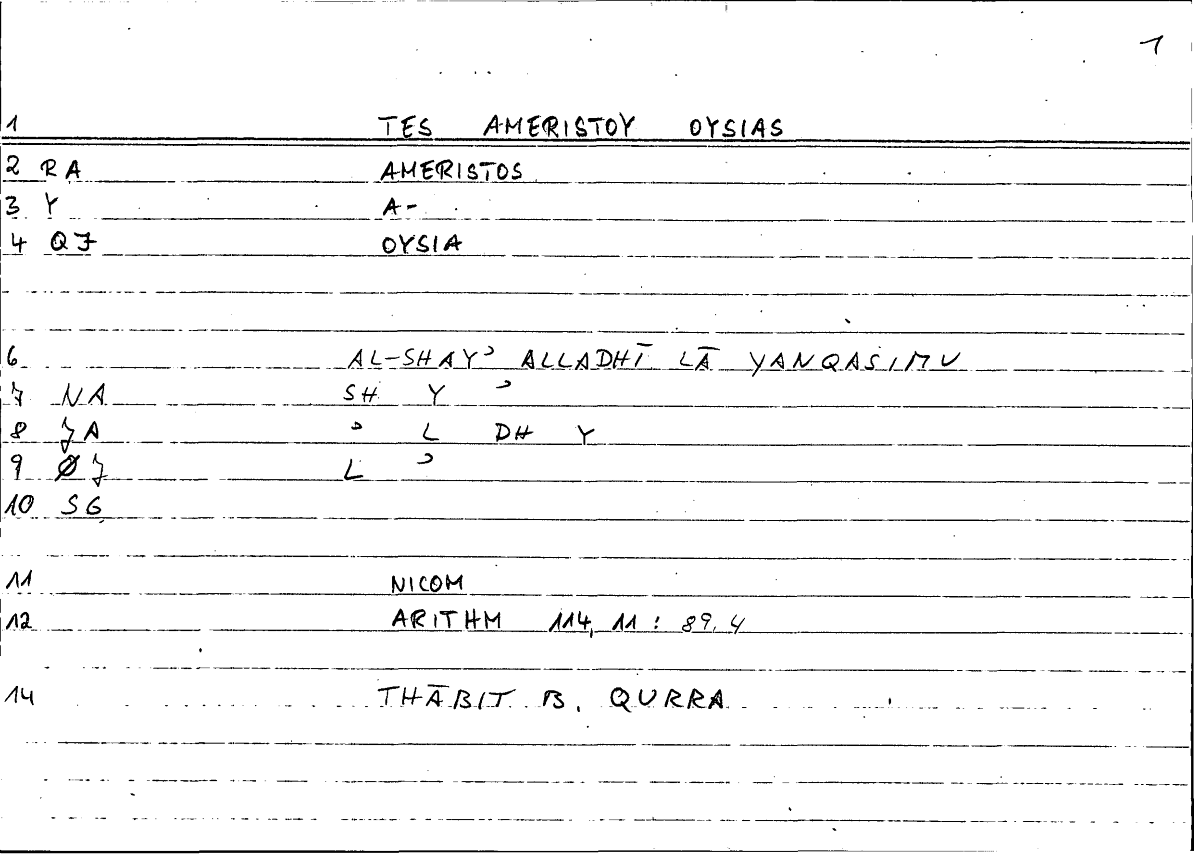 1
1 TES AMERISTOY OYSIAS
2 RA AMERISTOS
3 Y A-
4 QJ OYSIA
6 AL-SHAYʾ ALLADHĪ LĀ YANQASIMU
7 NA SH Y ʾ
8 JA ʾ L DH Y
9 ØJ L ʾ
10 SG
11 NICOM
12 ARITHM 114,11 : 89.4
14 THĀBIT B. QURRA